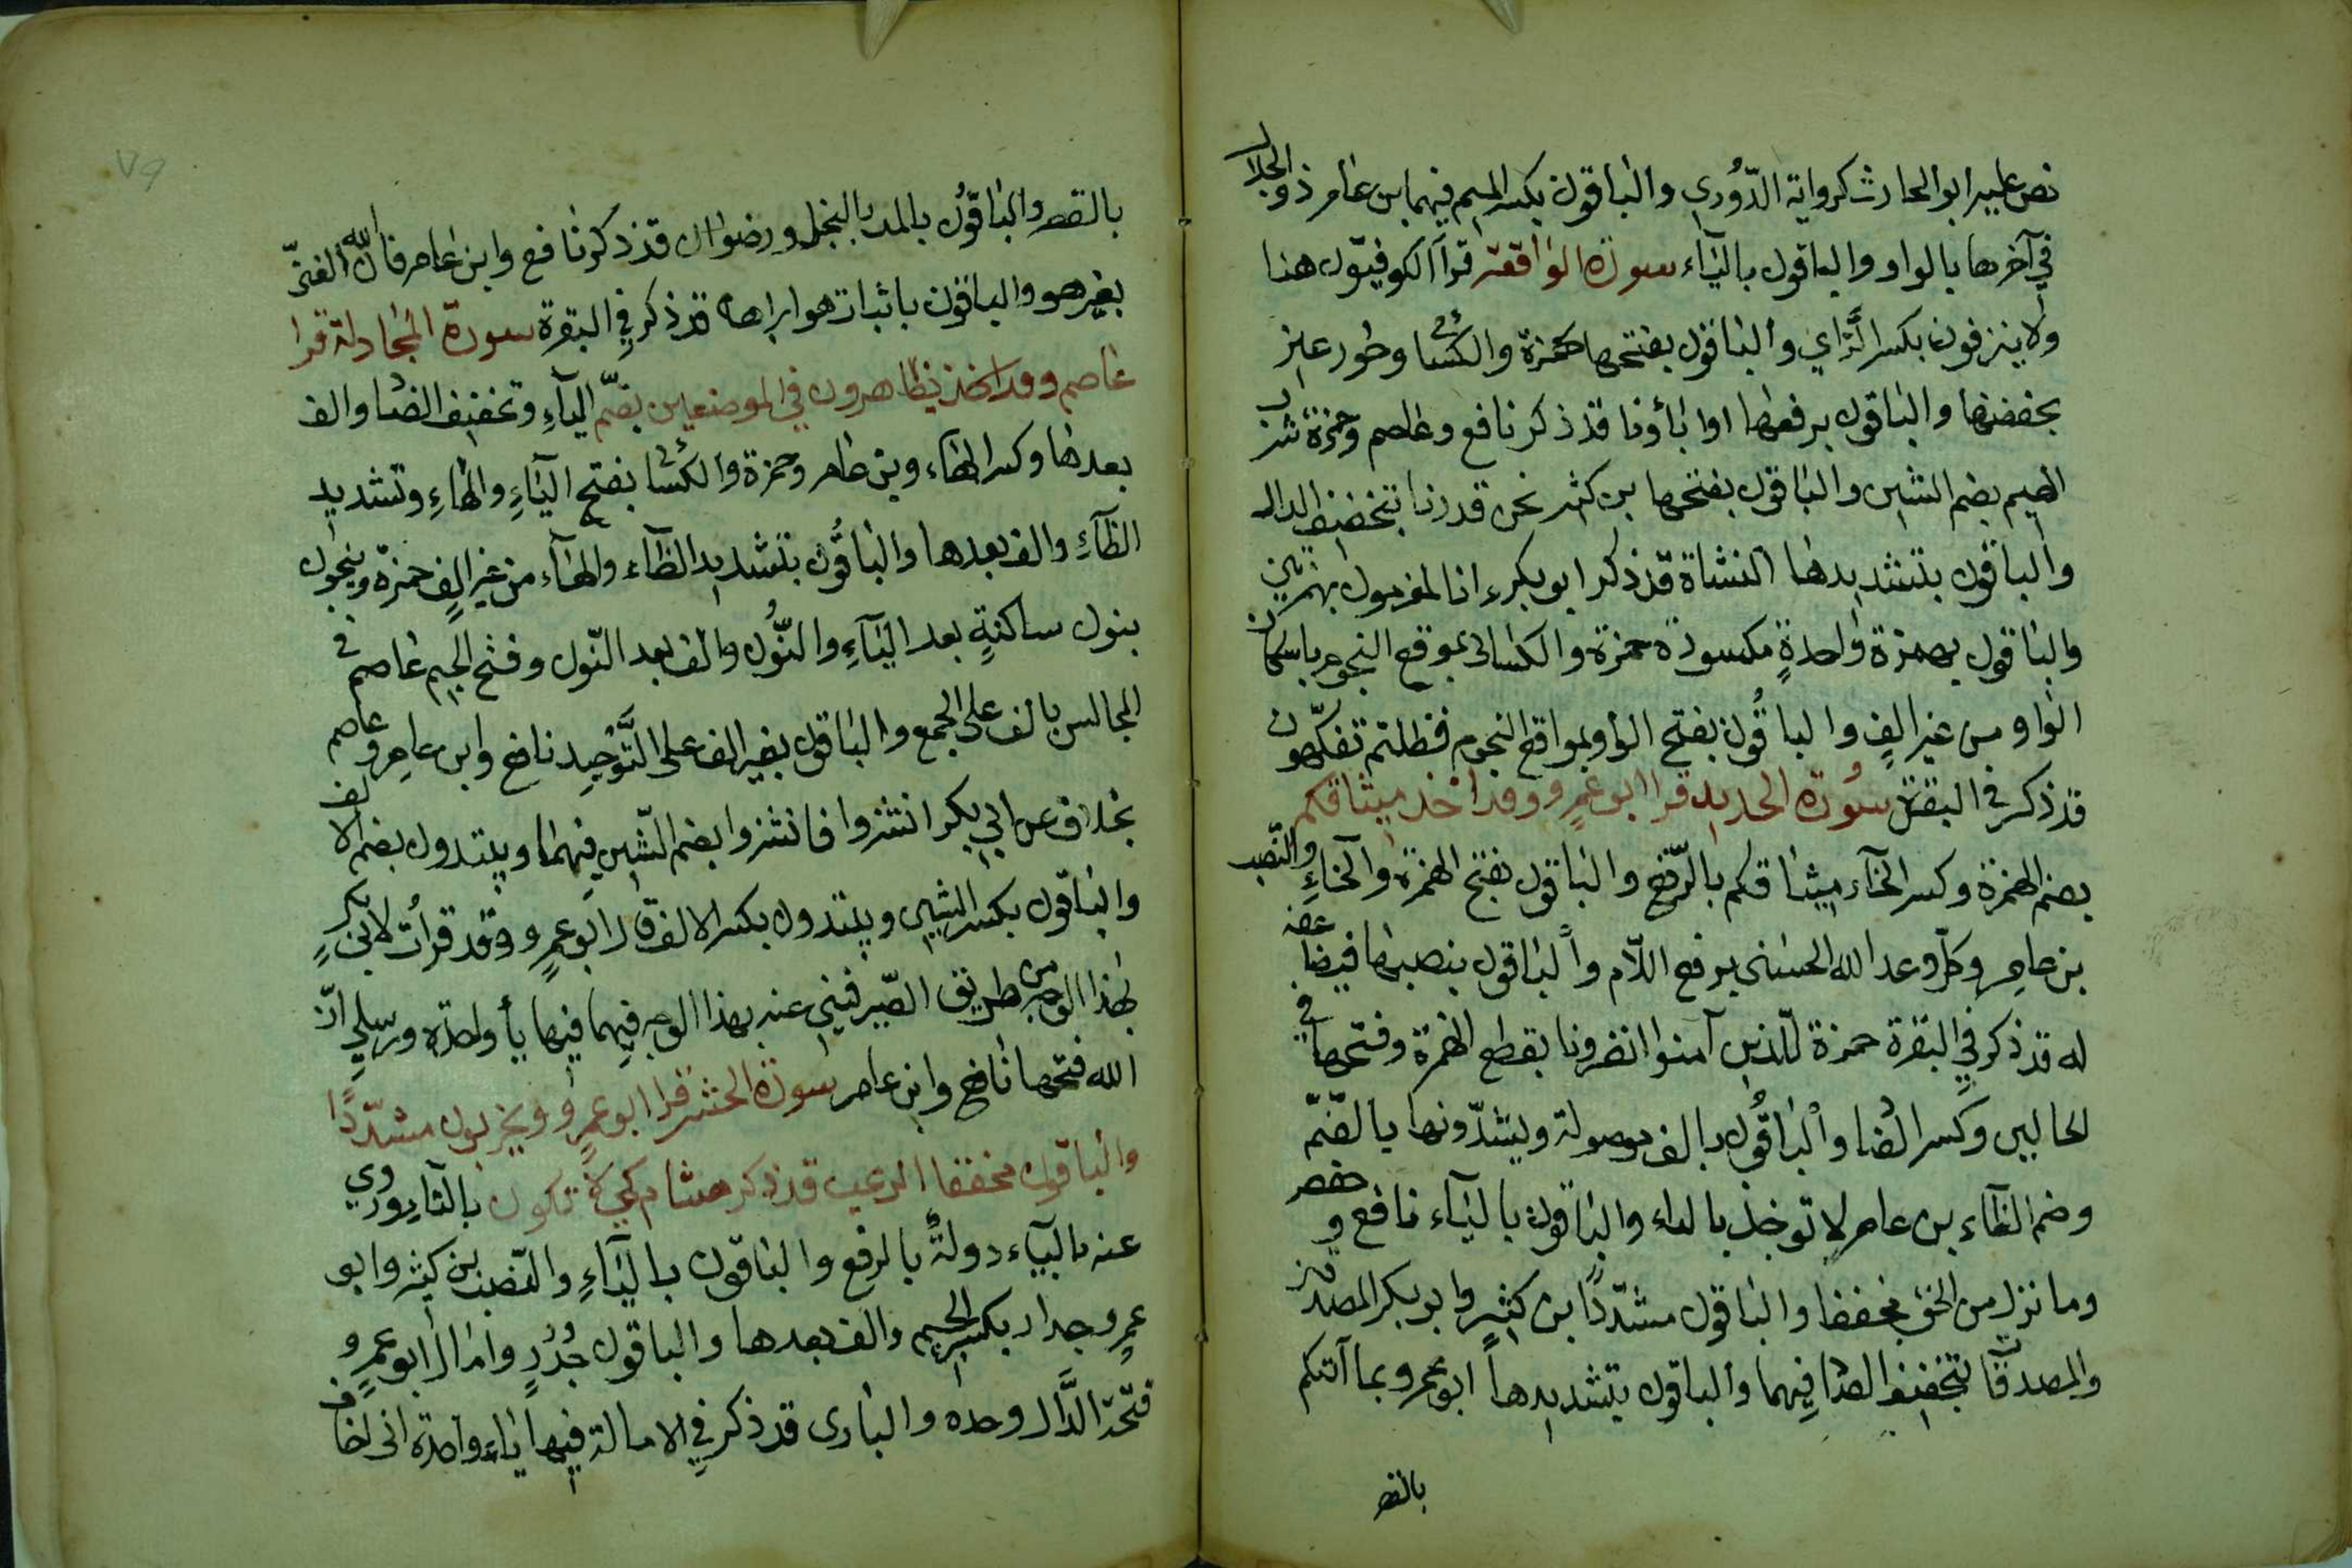 نص عليه ابو الحارث كرواية الدّوُري والباقون بكسر الميم فيهما بن عامر ذو الجلال
في آخرها بالواو والباقون باليآء سورة الواقعة قرأ الكوفيّون هنا
ولا ينزفون بكسر الزّاي والباقون بفتحها حمزة والكسائى وحور عين
بخفضها والباقون برفعها اوا باؤنا قد ذكر نافع وعاصم وحمزة شرب
الهيم بضم الشين والباقون بفتحها بن كثير نحن قدرنا بتخفيف الدال
والباقون بتشديدها النشاة قد ذكر ابو بكر ءانا لمغرمون بهمزتين
والباقون بهمزة واحدةٍ مكسورة حمزة والكسائى بموقع النجوم باسكان
الواو من غير الفٍ والباقُون بفتح الواو بمواقع النجوم فظلتم تفكّهون
قد ذكر في البقرة سُورة الحديد قرا ابو عمرٍو وقد اخذ ميثاقكم
بضم الهمزة وكسر الخآء ميثاقكم بالرّفع والباقون بفتح الهمزة والخاءِ والنّصب
بن عامر وكلّ وعد الله الحسنى برفع اللّام والباقون بنصبها فيضاعفه
له قد ذكر في البقرة حمزة للّذين آمنوا انظرونا بقطع الهمزة وفتحها في
الحالين وكسر الظا والباقُون بالف موصولة ويبتدّونها بالضّمّ
وضم الظاء بن عامر لا توخذ بالتاء والباقون باليآء نافع وحفص
وما نزل من الحق مخففا والباقون مشدّدًا بن كثيرٍ وابو بكر المصدقين
والمصدقات بتخفيف الصّاد فِيهما والباقون بتشديدها ابو عمرو بما آتكم
بالقصر
٧٩
بالقصر والباقُون بالمد بالبخل ورضوان قد ذكر نافع وابن عامر فان الله الغنىّ
بغير هو والباقون باثبات هو ابراهام قد ذكر في البقرة سورة المجادلة قرا
عاصم يظاهرون في الموضعين بضمّ اليآءِ وتخفيف الظا والف
بعدها وكسر الهاء وبن عامر وحمزة والكسائى بفتح اليآءِ والهاءِ وتشديد
الظآءِ والف بعدها والباقُون بتشديد الظآء والهآء من غير الفٍ حمزة وينجون
بنون ساكنةٍ بعد اليآءِ والنُّون والف بعد النّون وفتح الجيم عاصم في
المجالس بالف على الجمع والباقون بغير الف على التَّوحيد نافع وابن عامر وعاصم
بخلاف عن ابي بكر انشزوا فانشزوا بضم الشّين فِيهما ويبتدون بضم الالف
والباقون بكسر الشين ويبتدون بكسر الالف قال ابو عمرٍو وقد قرأت لابى بكرٍ
بهذا الوجه من طريق الصّيرفيني عنه بهذا الوجه فيهما فيها يأ واحدة ورسلي انّ
الله فتحها نافع وابن عامر سورة الحشر قرا ابو عمرٍو يخربون مشدّدًا
والباقون مخففا الرعب قد ذكر هشام كي لا تكون بالتا ويروي
عنه باليآء دولةٌ بالرفع والباقون باليآءِ والنّصب بن كثير وابو
عمرٍو جدار بكسر الجيم والف بعدها والباقون جُدُرٍ وامال ابو عمرٍو
فتحة الدَّال وحده والبارى قد ذكر في الامالة فيها ياء واحدة انى اخاف